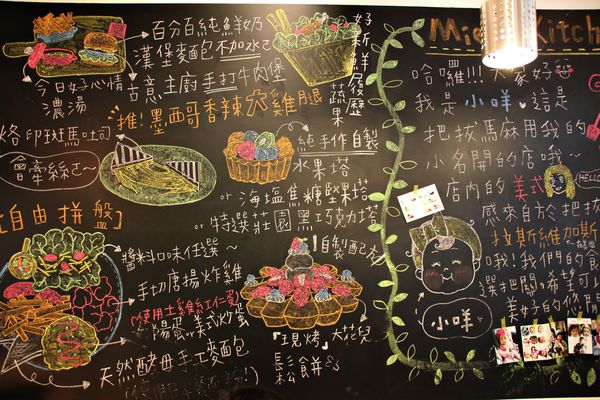 百分百純鮮奶
漢堡麵包不加水
今日好心情
濃湯
古意主廚手打牛肉堡
推!墨西哥香辣大雞腿
好新鮮履歷
蔬果
烙印斑馬吐司
會牽絲
純手作自製
水果塔
or 海塩焦糖堅果塔
or 特選莊園黑巧克力塔
[自由拼盤]
醬料口味任選~
手切唐揚炸雞
(使用土雞
陽蛋or美式炒蛋
天然酵母手工麥包
!自製配方
『現烤』大花兒
鬆餅
Kitch
哈囉!!!大家好
我是小咩,這是
把拔馬麻用我的
小名開的店哦~
店內的美式
HELLO
感來自於把拔
拉斯維加斯
哦!我們的食
選把關,希望可
美好的你們
小咩